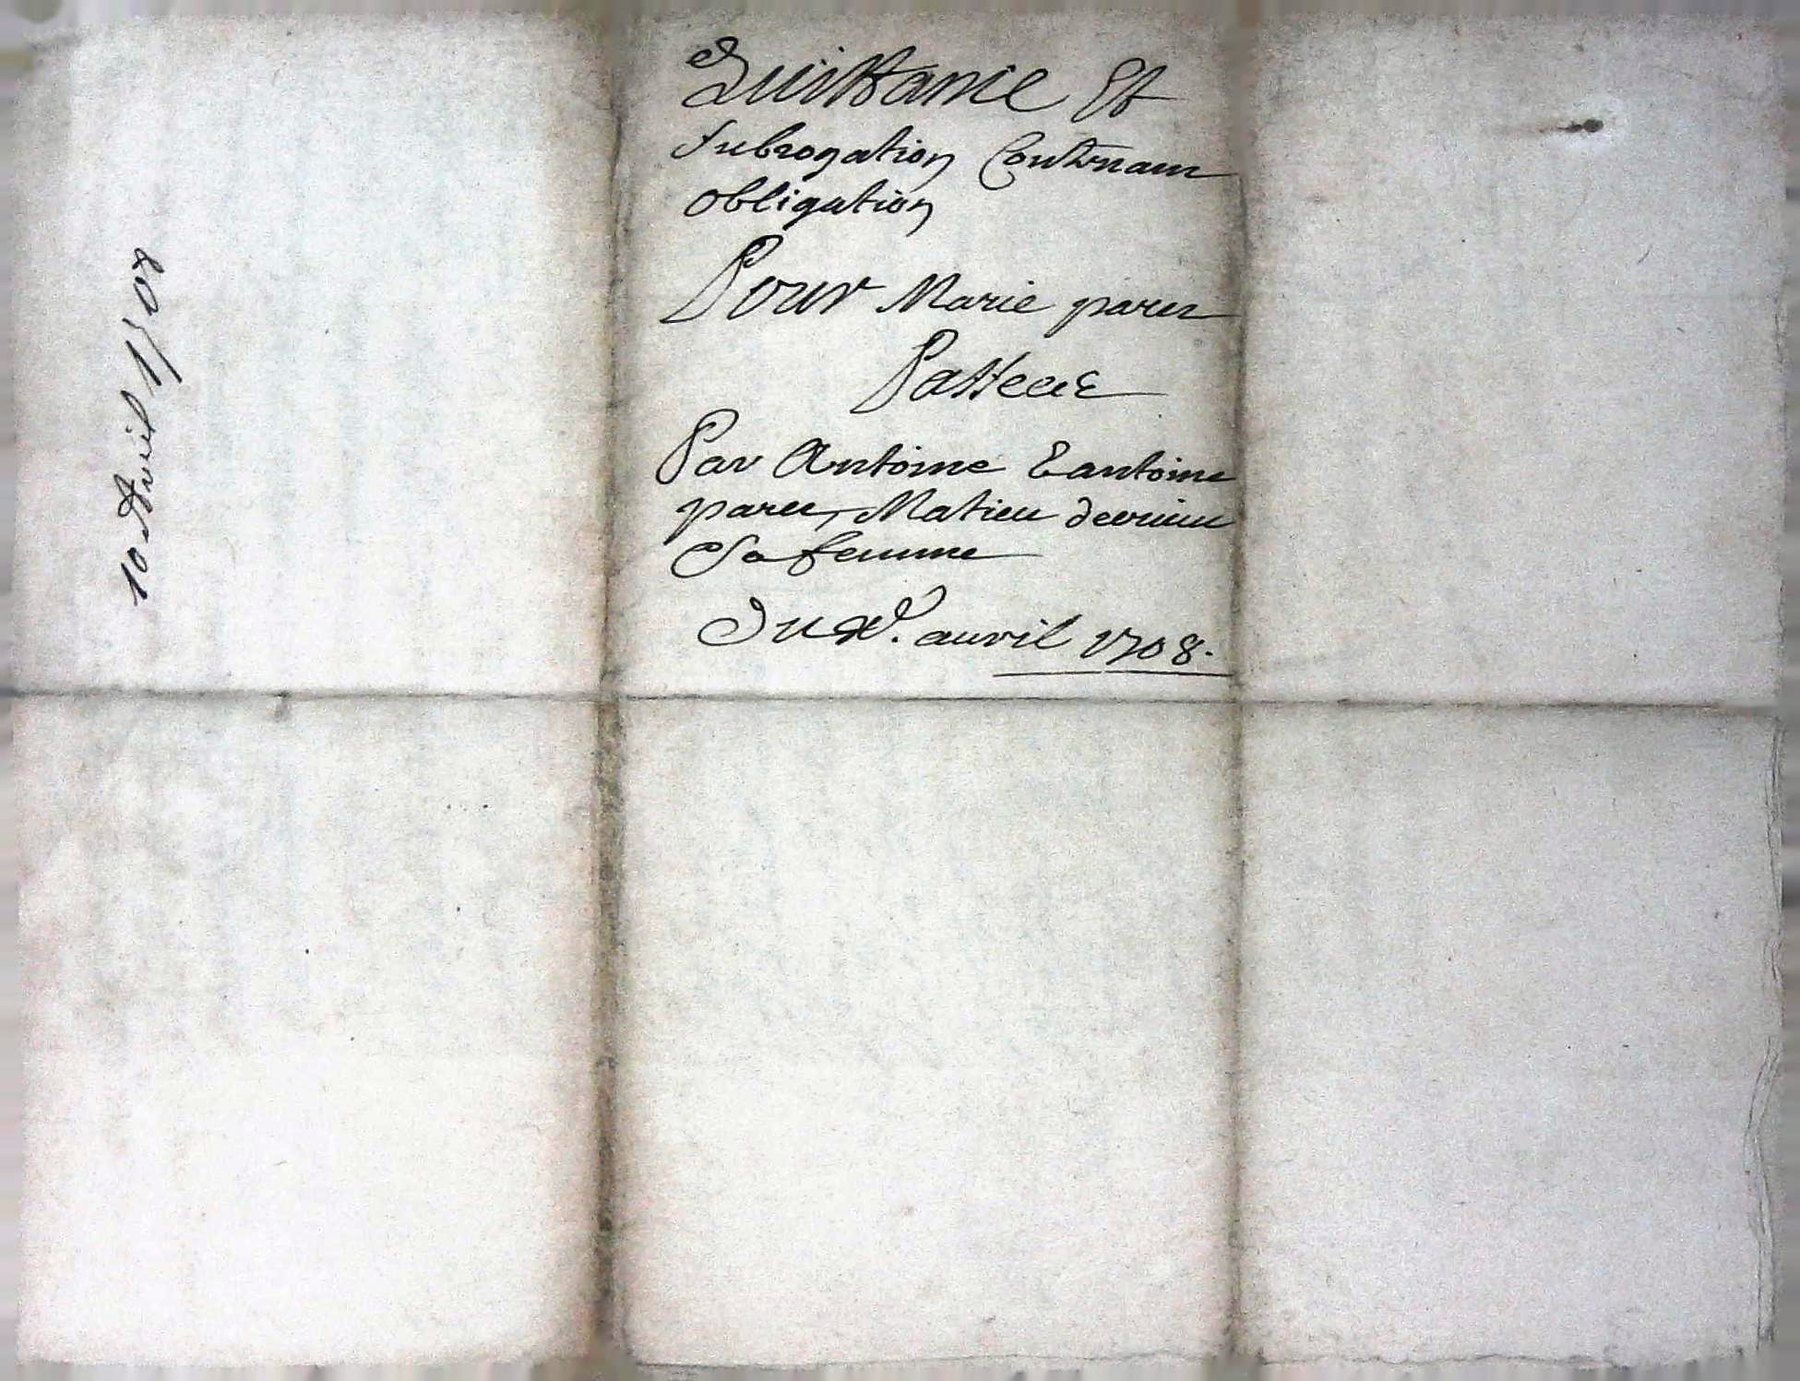 Quittance Et
subrogation Contenant
obligation
Pour Marie parer
Passeé
Par Antoine Eantoine
parer, Matieu
Sa femme
Du Xe. auvril 1708.
10 Avril 1708